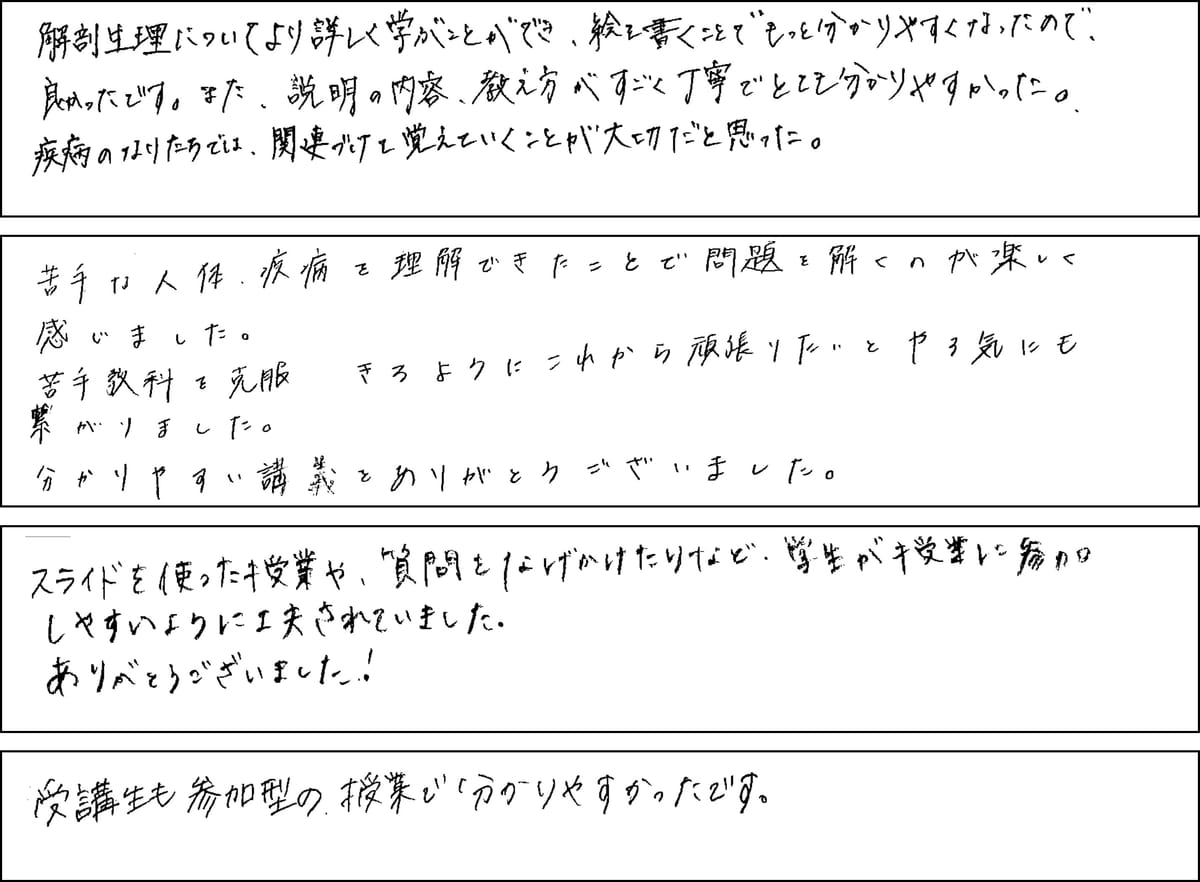 解剖生理についてより詳しく学ぶことができ、絵を書くことでもっと分かりやすくなったので、
良かったです。また、説明の内容、教え方がすごく丁寧でとても分かりやすかった。
疾病のなりたちでは、関連づけて覚えていくことが大切だと思った。
苦手な人体、疾病を理解できたことで問題を解くのが楽しく
感じました。
苦手教科を克服 きるようにこれから頑張りたいとやる気にも
繋がりました。
分かりやすい講義をありがとうございました。
スライドを使った授業や、質問をなげかけたりなど、学生が授業に参加
しやすいように工夫されていました。
ありがとうございました!
受講生も参加型の授業で分かりやすかったです。